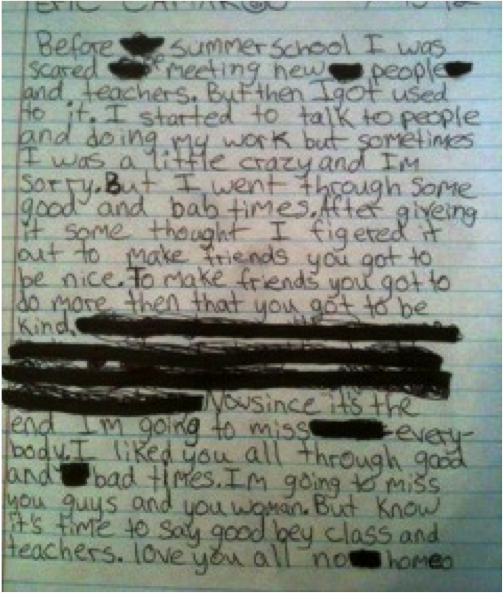 Before summer school I was
scared meeting new people
and teachers. But then I got used
to it. I started to talk to people
and doing my work but sometimes
I was a little crazy and Im
sorry. But I went through some
good and bab times. After giveing
it some thought I figered it
out to make friends you got to
be nice. To make friends you got to
do more then that you got to be
kind.
Now since it's the
end Im going to miss every-
body. I liked you all through good
and bad times. Im going to miss
you guys and you woman. But know
it's time to say good bey class and
teachers. love you all no homeo